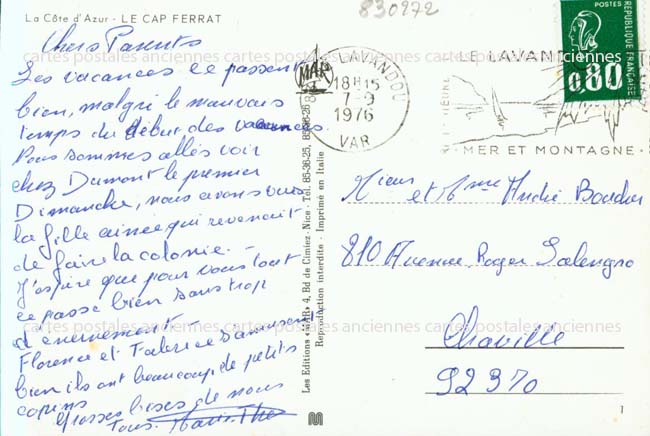 La Côte d'Azur - LE CAP FERRAT
830272
Chers Parents
Les vacances ce passent
bien, malgré le mauvais
temps du début des vacances.
Nous sommes allés voir
chez Dumont le premier
Dimanche, nous avons vus
la fille ainée qui revenait
de faire la colonie. -
J'espère que pour vous tout
ce passe bien sans trop
d'enervement -
Florence et Fabrice s'amusent
bien ils ont beaucoup de petits
copains
Grosses bises de nous
Tous.
Les Editions «MAR» 4, Bd de Cimiez - Nice - Tél. 85-36-25,
Reproduction interdite - Imprimé en Italie
MAR
LE LAVANDOU
18H15
7-9
1976
VAR
LE LAVAN
MER ET MONTAGNE
REPUBLIQUE FRANÇAISE
0,80
et Mme André
810 Avenue Roger Salengro
Chaville
92370
1
cartes postales anciennes cartes postales anciennes cartes postales anciennes
cartes postales anciennes cartes postales anciennes cartes postales anciennes